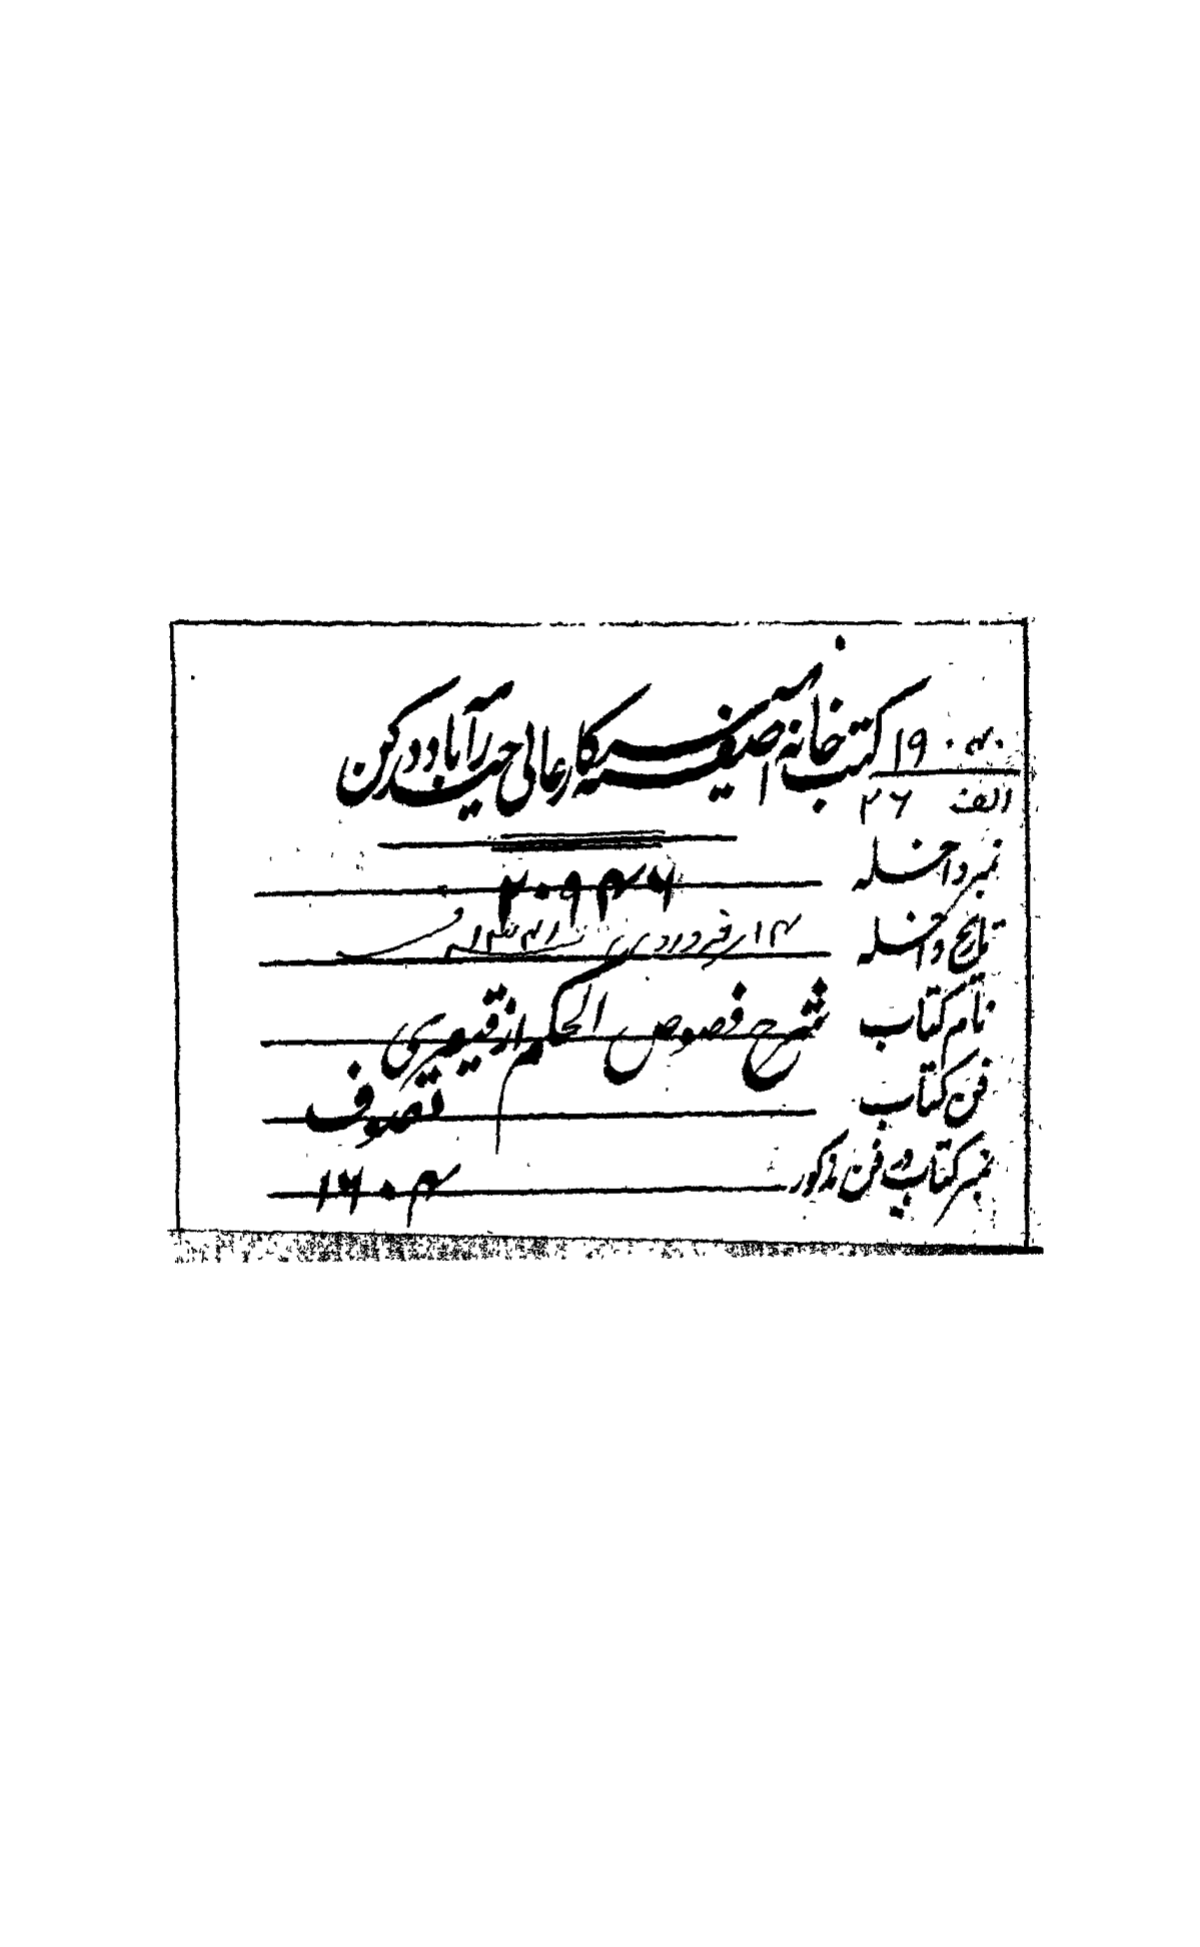 کتب خانہ آصفیہ سرکار عالی حیدرآباد دکن
الف ۲۶
نمبر داخلہ ۲۰۹۴۶
تاریخ داخلہ ۱۴ فروردی
نام کتاب شرح فصوص الحکم از قیصری
فن کتاب تصوف
نمبر کتاب در فن مذکور ۱۶۰۴